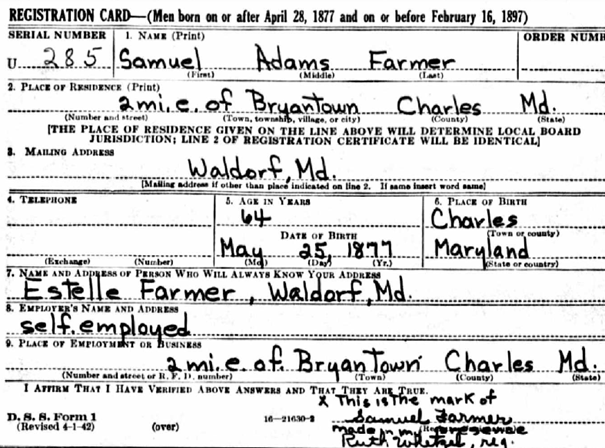 REGISTRATION CARD—(Men born on or after April 28, 1877 and on or before February 16, 1897)
SERIAL NUMBER 1. NAME (Print) ORDER NUMB
U 285 Samuel Adams Farmer
(First) (Middle) (Last)
2. PLACE OF RESIDENCE (Print)
2 mi. e. of Bryantown Charles Md.
(Number and street) (Town, township, village, or city) (County) (State)
[THE PLACE OF RESIDENCE GIVEN ON THE LINE ABOVE WILL DETERMINE LOCAL BOARD
JURISDICTION; LINE 2 OF REGISTRATION CERTIFICATE WILL BE IDENTICAL]
3. MAILING ADDRESS
Waldorf, Md.
[Mailing address if other than place indicated on line 2. If same insert word same]
4. TELEPHONE 5. AGE IN YEARS 6. PLACE OF BIRTH
64 Charles
DATE OF BIRTH (Town or county)
May 25 1877 Maryland
(Exchange) (Number) (Mo.) (Day) (Yr.) (State or country)
7. NAME AND ADDRESS OF PERSON WHO WILL ALWAYS KNOW YOUR ADDRESS
Estelle Farmer, Waldorf, Md.
8. EMPLOYER'S NAME AND ADDRESS
self. employed
9. PLACE OF EMPLOYMENT OR BUSINESS
2 mi. e. of. Bryantown Charles Md.
(Number and street or R. F. D. number) (Town) (County) (State)
I AFFIRM THAT I HAVE VERIFIED ABOVE ANSWERS AND THAT THEY ARE TRUE.
X This is The mark of
D. S. S. Form 1 Samuel Farmer
(Revised 4-1-42) (over) 16—21630-2 made in my presence
Ruth